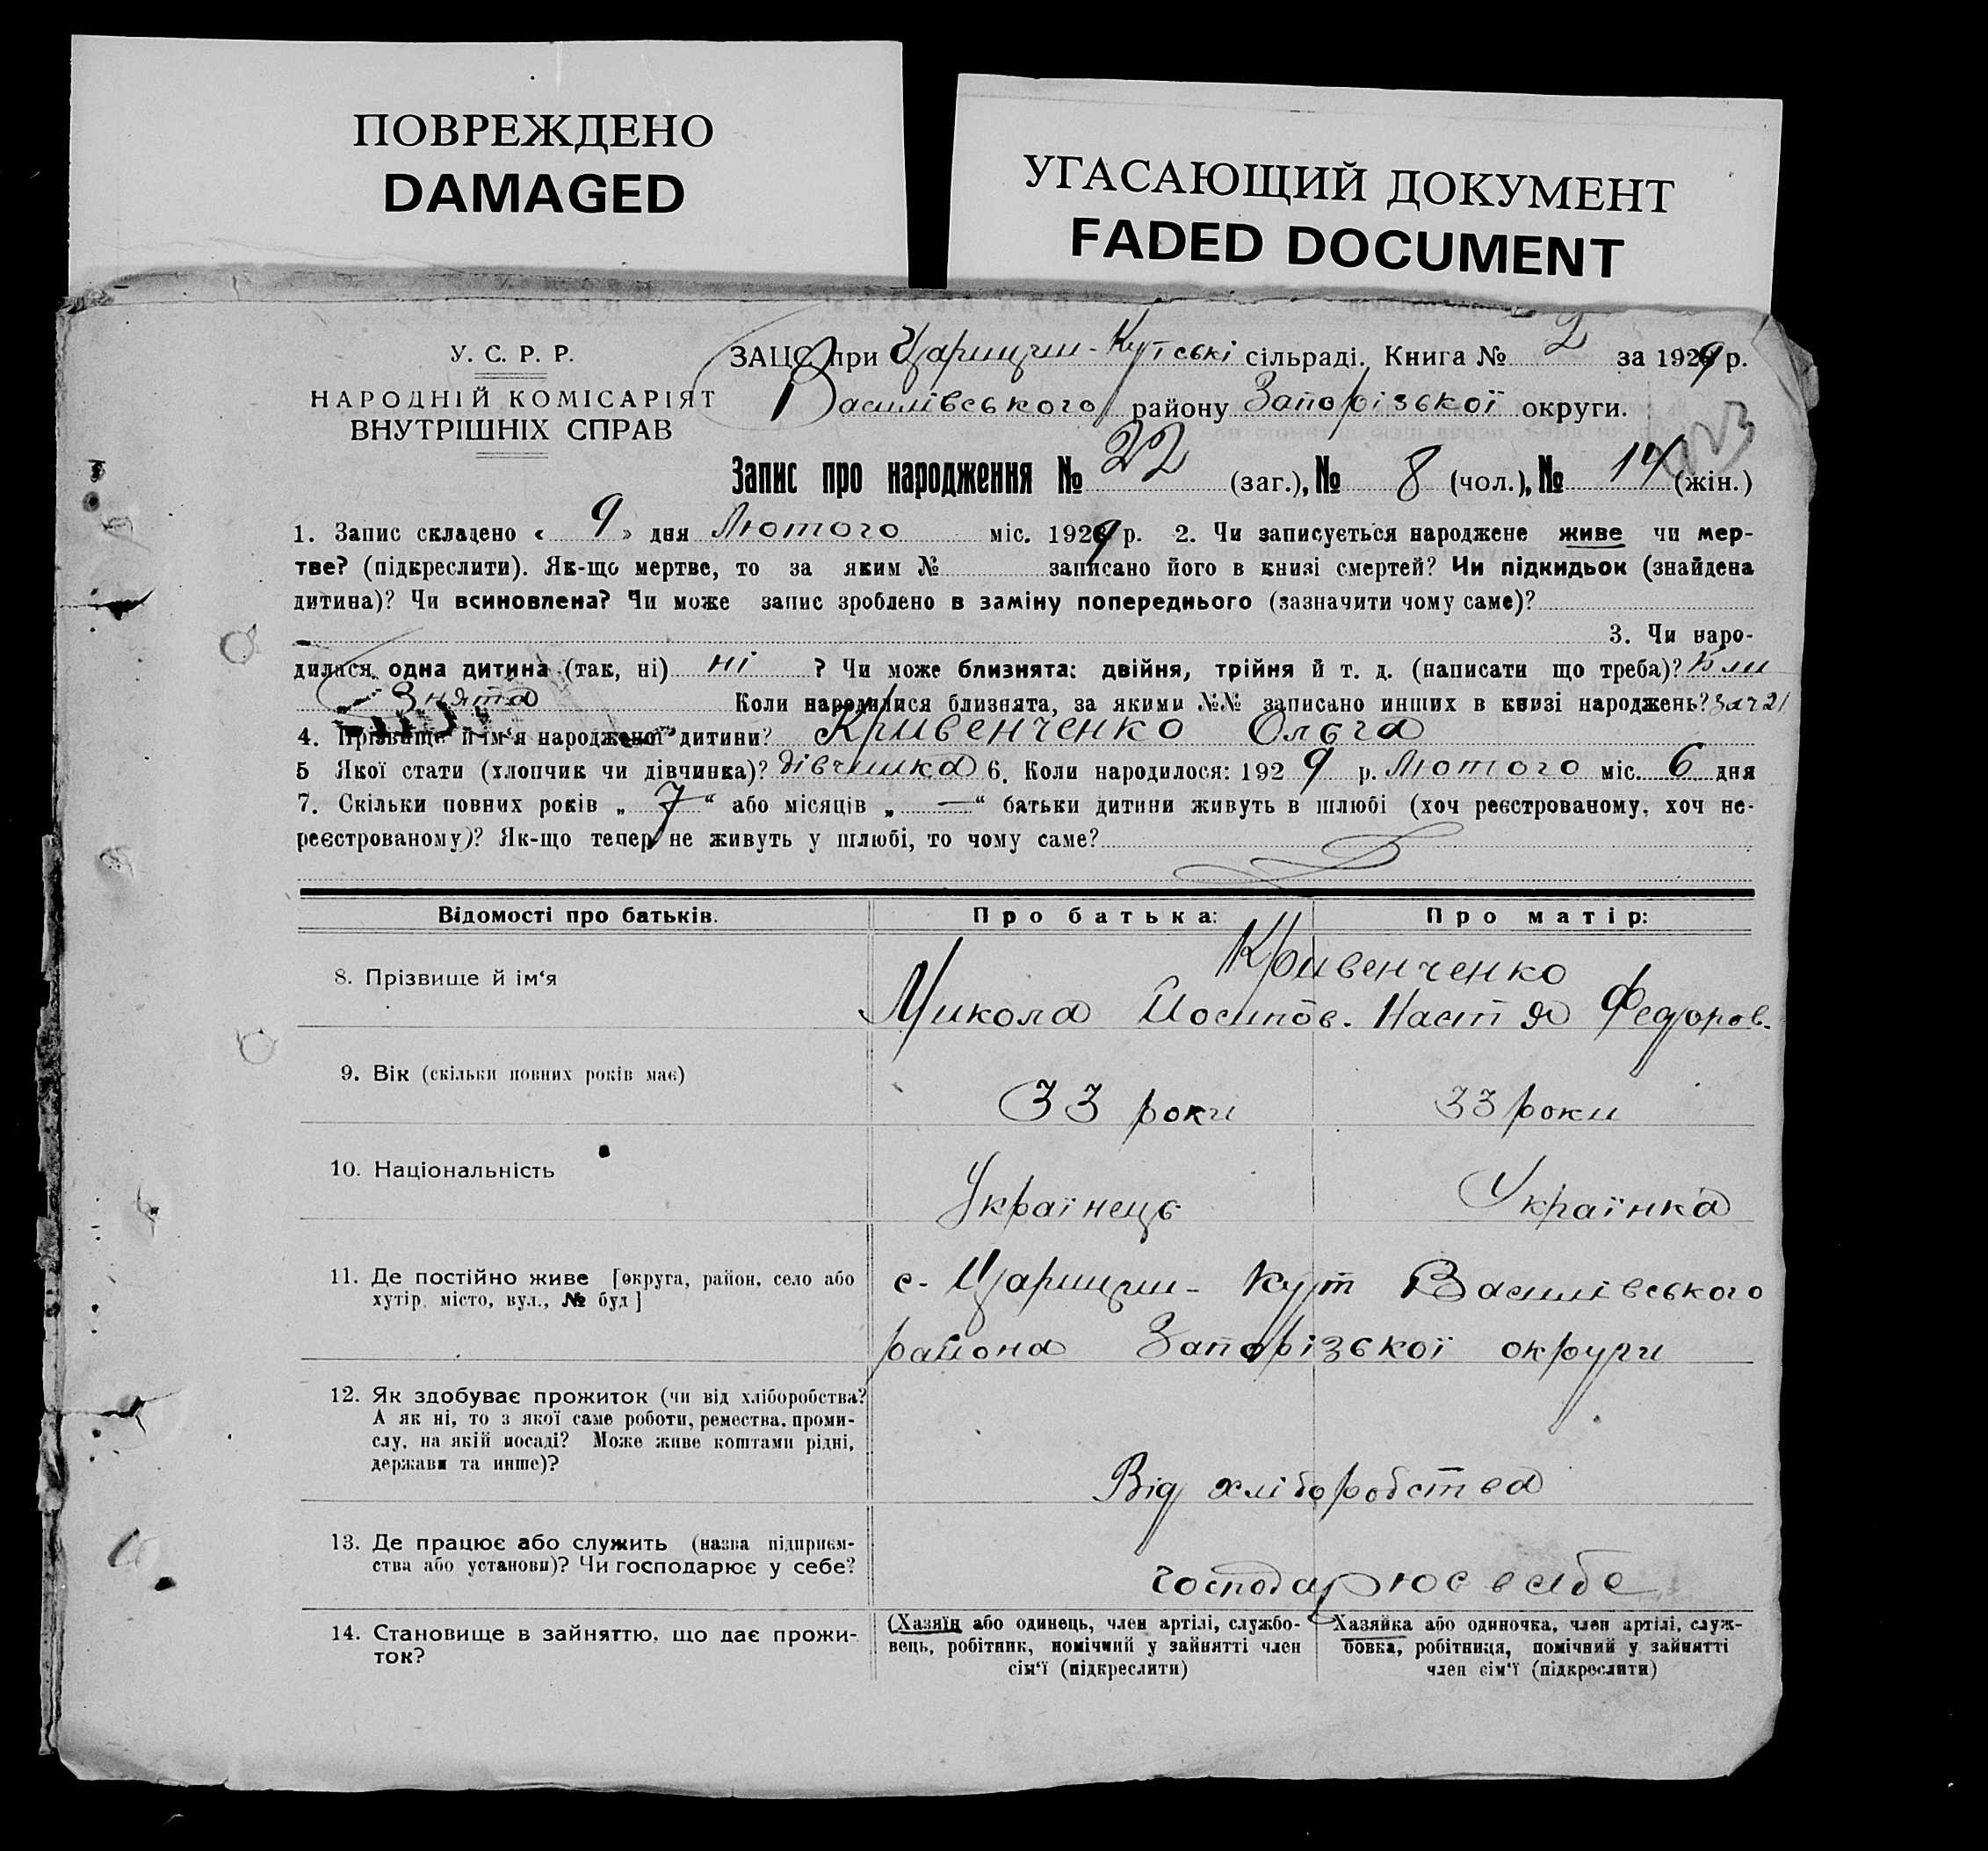 ПОВРЕЖДЕНО
DAMAGED
УГАСАЮЩИЙ ДОКУМЕНТ
FADED DOCUMENT
У. С. Р. Р.
НАРОДНІЙ КОМІСАРІЯТ
ВНУТРІШНІХ СПРАВ
ЗАЦС при Царицин-Кутські сільраді. Книга № 2 за 1929 р.
Василівського району Запорізької округи.
Запис про народження № 22 (заг.), № 8 (чол.), № 14 (жін.)
1. Запис складено « 9 » дня Лютого міс. 1929 р. 2. Чи записується народжене живе чи мер-
тве? (підкреслити). Як-що мертве, то за яким № записано його в книзі смертей? Чи підкидьок (знайдена
дитина)? Чи всиновлена? Чи може запис зроблено в заміну попереднього (зазначити чому саме)?
3. Чи наро-
дилася одна дитина (так, ні) ні ? Чи може близнята: двійня, трійня й т. д. (написати що треба)? Бли
знята Коли народилися близнята, за якими №№ записано инших в книзі народжень? За ч 21
4. Прізвище й ім'я народженої дитини? Кривенченко Ольга
5 Якої стати (хлопчик чи дівчинка)? дівчинка 6. Коли народилося: 1929 р. Лютого міс. 6 дня
7. Скільки повних років „ 7 “ або місяців „ — “ батьки дитини живуть в шлюбі (хоч реєстрованому, хоч не-
реєстрованому)? Як-що тепер не живуть у шлюбі, то чому саме?
Відомості про батьків. Про батька: Про матір:
Кривенченко
8. Прізвище й ім'я Микола Йосипов. Настя Федоров.
9. Вік (скільки повних років має) 33 роки 33 роки
10. Національність Українець Українка
11. Де постійно живе [округа, район, село або с. Царицин-Кут Василівського
хутір, місто, вул., № буд] района Запорізської округи
12. Як здобуває прожиток (чи від хліборобства?
А як ні, то з якої саме роботи, ремества, проми-
слу, на якій посаді? Може живе коштами рідні,
держави та инше)? Від хліборобства
13. Де працює або служить (назва підприєм-
ства або установи)? Чи господарює у себе? господарює в себе
14. Становище в зайняттю, що дає прожи-
ток?
(Хазяїн або одинець, член артілі, службо-
вець, робітник, помічний у зайнятті член
сім'ї (підкреслити)
Хазяйка або одиночка, член артілі, служ-
бовка, робітниця, помічний у зайнятті
член сім'ї (підкреслити)